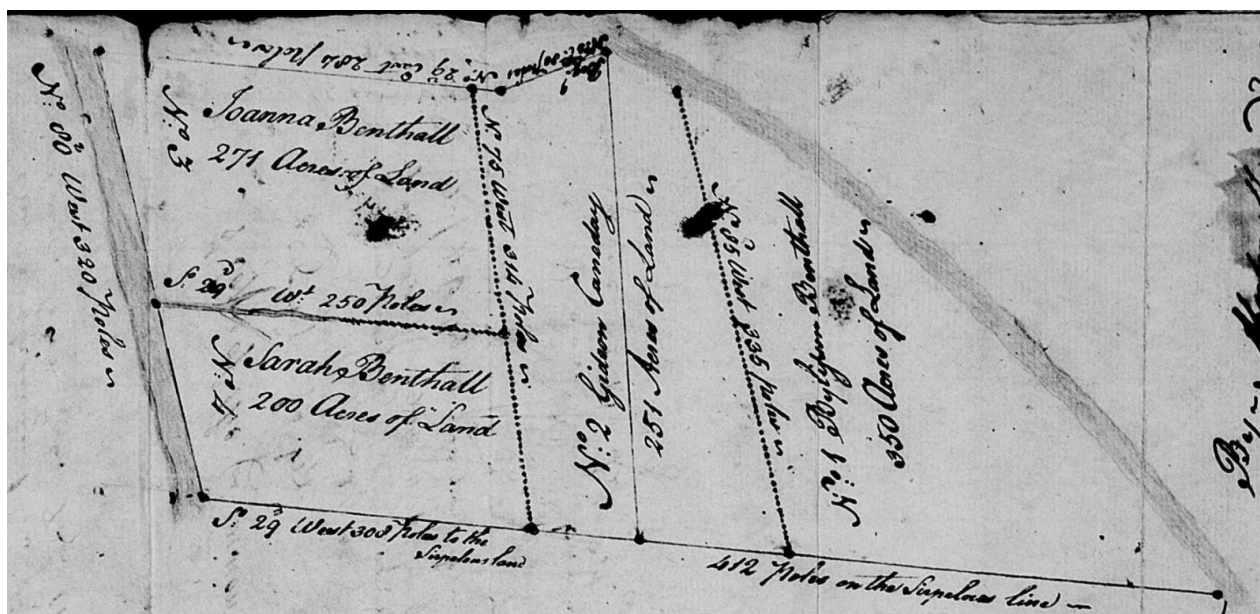 No. 80 West 320 Poles
No. 29 East 284 Poles
No. 3
Joanna Benthall
271 Acres of Land
So. 29 Wt. 250 Poles
No. 4
Sarah Benthall
200 Acres of Land
No. 75 West 314 Poles
No. 2 Gideon Canaday
251 Acres of Land
No. 85 West 335 Poles
No. 1 Benthall
350 Acres of Land
So. 29 West 308 Poles to the
land
412 Poles on the line